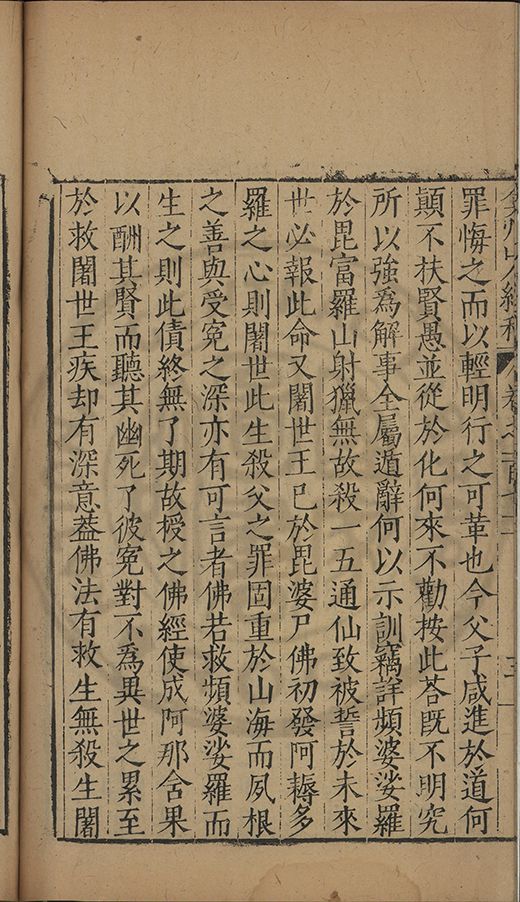 罪悔之而以輕明行之可革也今父子咸進於道何
顛不扶賢愚並從於化何來不勸按此荅既不明究
所以強為解事全屬遁辭何以示訓竊詳頻婆娑羅
於毘富羅山射獵無故殺一五通仙致被誓於未來
世必報此命又闍世王已於毘婆尸佛初發阿耨多
羅之心則闍世此生殺父之罪固重於山海而夙根
之善與受寃之深亦有可言者佛若救頻婆娑羅而
生之則此債終無了期故授之佛經使成阿那含果
以酬其賢而聽其幽死了彼寃對不為異世之累至
於救闍世王疾却有深意葢佛法有救生無殺生闍